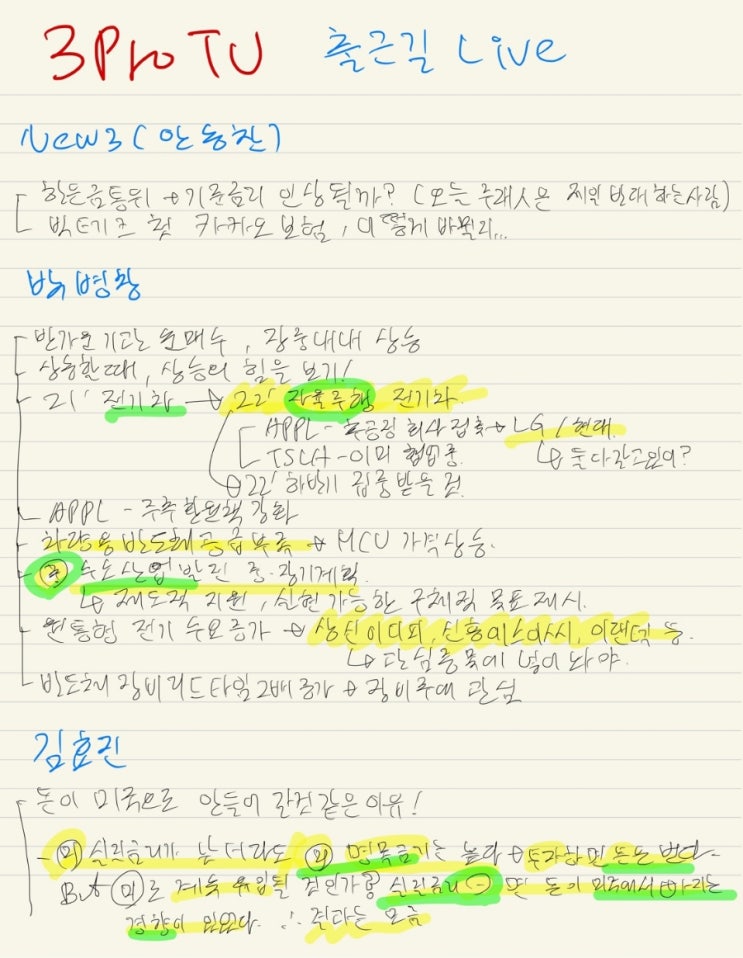 3ProTV 출근길 Live
New3 (안동찬)
한은금통위 → 기준금리 인상될까? (오늘 주래人은 제외 반대하는사람)
빅테크 첫 카카오보험, 어떻게 바뀔지...
박병창
반가운 기관 순매수, 장중내내 상승
상승할때, 상승의 힘을 보기!
21' 전기차 → 22' 자율주행 전기차
APPL - 부품 회사 접촉 → LG / 현대
TSLA - 이미 협업중. ↳ 둘다 갈고있어?
→ 22' 하반기 집중받을 것
APPL - 주주환원책 강화
차량용 반도체 공급부족 → MCU 가격상승.
중 수소산업발전 중·장기계획.
↳ 제도적 지원, 실현가능한 구체적 목표제시.
원통형 전기 수요증가 → 상신이디피, 신흥에스이씨, 이랜텍 등.
↳ 관심종목에 넣어놔야.
반도체장비 리드타임 2배증가 → 장비주에 관심
김효진
돈이 미국으로 안들어 갈것같은 이유!
- 미 실질금리가 낮더라도 미 명목금리는 높다 → 투자하면 돈은 번다-
But 미로 계속 유입될 것인가? 실질금리 - 면 돈이 미국에서 빠지는
경향이 있었다. ∴ 전과는 다름